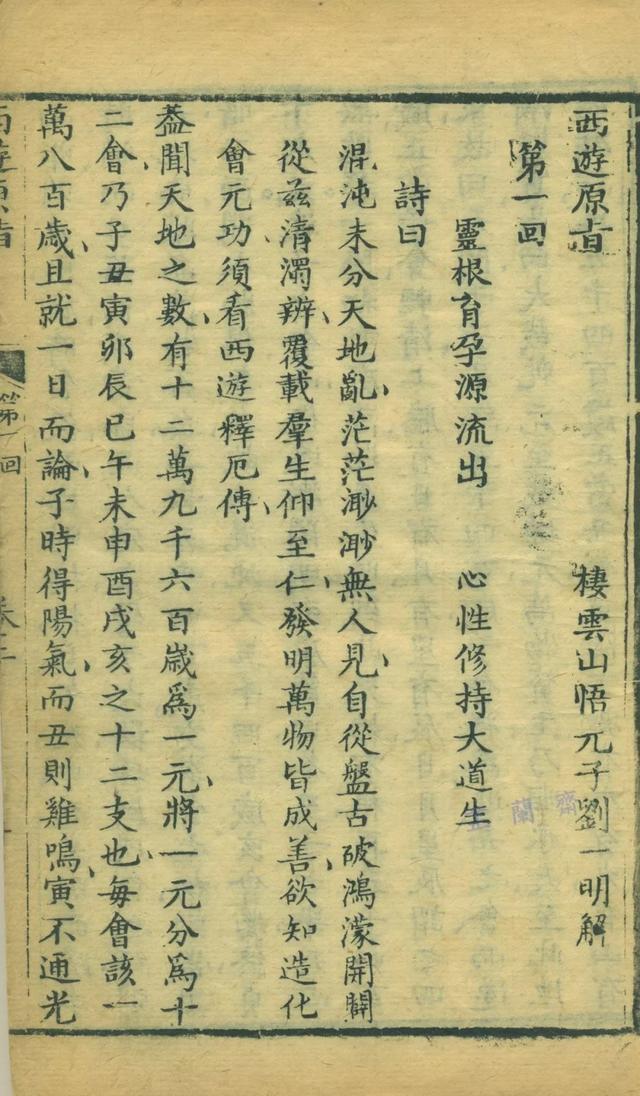 西遊原旨 棲雲山悟元子劉一明解
第一回
靈根育孕源流出 心性修持大道生
詩曰
混沌未分天地亂茫茫渺渺無人見自從盤古破鴻濛開闢
從茲清濁辨覆載羣生仰至仁發明萬物皆成善欲知造化
會元功須看西遊釋厄傳
葢聞天地之數有十二萬九千六百歲爲一元將一元分爲十
二會乃子丑寅卯辰巳午未申酉戌亥之十二支也每會該一
萬八百歲且就一日而論子時得陽氣而丑則雞鳴寅不通光
第一回